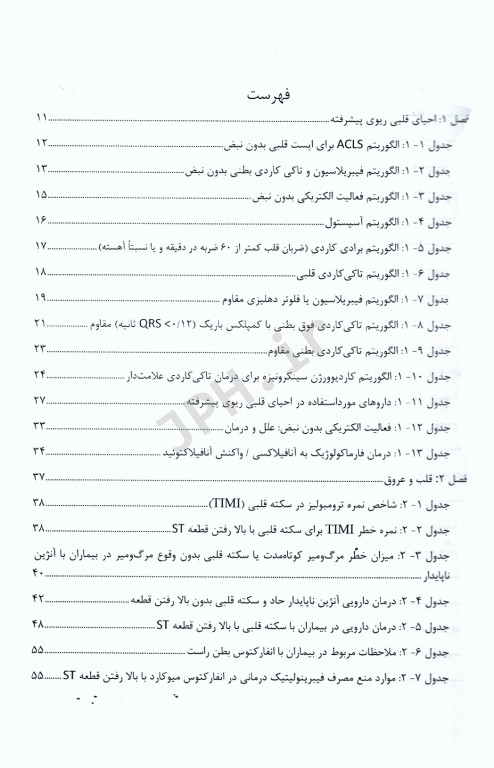 فهرست
فصل ۱: احیای قلبی ریوی پیشرفته ۱۱
جدول ۱- ۱: الگوریتم ACLS برای ایست قلبی بدون نبض ۱۲
جدول ۲- ۱: الگوریتم فیبریلاسیون و تاکی کاردی بطنی بدون نبض ۱۳
جدول ۳- ۱: الگوریتم فعالیت الکتریکی بدون نبض ۱۵
جدول ۴- ۱: الگوریتم آسیستول ۱۶
جدول ۵- ۱: الگوریتم برادی کاردی (ضربان قلب کمتر از ۶۰ ضربه در دقیقه و یا نسبتاً آهسته) ۱۷
جدول ۶- ۱: الگوریتم تاکی‌کاردی قلبی ۱۸
جدول ۷- ۱: الگوریتم فیبریلاسیون یا فلوتر دهلیزی مقاوم ۱۹
جدول ۸- ۱: الگوریتم تاکی‌کاردی فوق بطنی با کمپلکس باریک (QRS <۰/۱۲ ثانیه) مقاوم ۲۱
جدول ۹- ۱: الگوریتم تاکی‌کاردی بطنی مقاوم ۲۳
جدول ۱۰- ۱: الگوریتم کاردیوورژن سینکرونیزه برای درمان تاکی‌کاردی علامت‌دار ۲۴
جدول ۱۱- ۱: داروهای مورداستفاده در احیای قلبی ریوی پیشرفته ۲۷
جدول ۱۲- ۱: فعالیت الکتریکی بدون نبض: علل و درمان ۳۳
جدول ۱۳- ۱: درمان فارماکولوژیک به آنافیلاکسی / واکنش آنافیلاکتوئید ۳۴
فصل ۲: قلب و عروق ۳۷
جدول ۱- ۲: شاخص نمره ترومبولیز در سکته قلبی (TIMI) ۳۸
جدول ۲- ۲: نمره خطر TIMI برای سکته قلبی با بالا رفتن قطعه ST ۳۸
جدول ۳- ۲: میزان خطر مرگ‌ومیر کوتاه‌مدت یا سکته قلبی بدون وقوع مرگ‌ومیر در بیماران با آنژین
ناپایدار ۴۰
جدول ۴- ۲: درمان دارویی آنژین ناپایدار حاد و سکته قلبی بدون بالا رفتن قطعه ۴۲
جدول ۵- ۲: درمان دارویی در بیماران با سکته قلبی با بالا رفتن قطعه ST ۴۸
جدول ۶- ۲: ملاحظات مربوط در بیماران با انفارکتوس بطن راست ۵۵
جدول ۷- ۲: موارد منع مصرف فیبرینولیتیک درمانی در انفارکتوس میوکارد با بالا رفتن قطعه ST ۵۵
JPH.ir